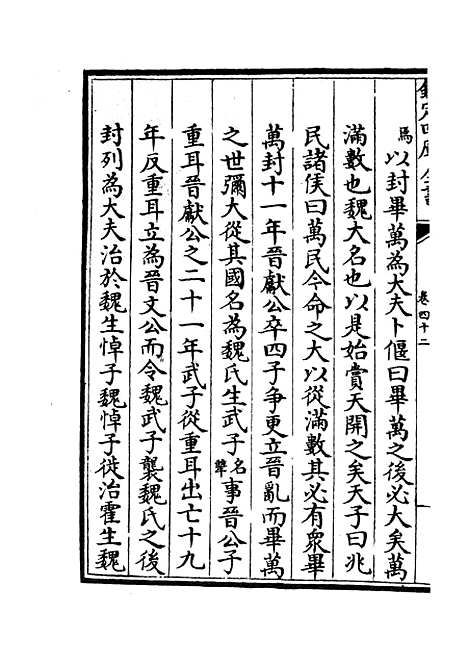 卷四十二
焉以封畢萬為大夫卜偃曰畢萬之後必大矣萬
滿數也魏大名也以是始賞天開之矣天子曰兆
民諸侯曰萬民今命之大以從滿數其必有眾畢
萬封十一年晉獻公卒四子争更立晉亂而畢萬
之世彌大從其國名為魏氏生武子名犨事晉公子
重耳晉獻公之二十一年武子從重耳出亡十九
年反重耳立為晉文公而令魏武子襲魏氏之後
封列為大夫治於魏生悼子魏悼子徙治霍生魏